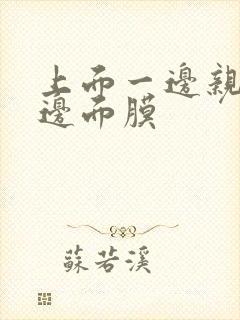 上而一邊親
邊而膜
蘇若溪